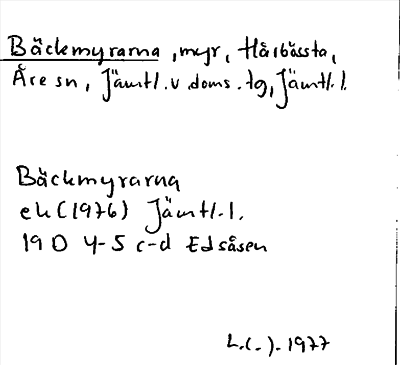 Bäckmyrarna, myr, Hårbässta,
Åre sn, Jämtl. v. doms. tg, Jämtl. l.
Bäckmyrarna
ek (1976) Jämtl. l.
19 D 4-5 c-d Edsåsen
L.(-). 1977